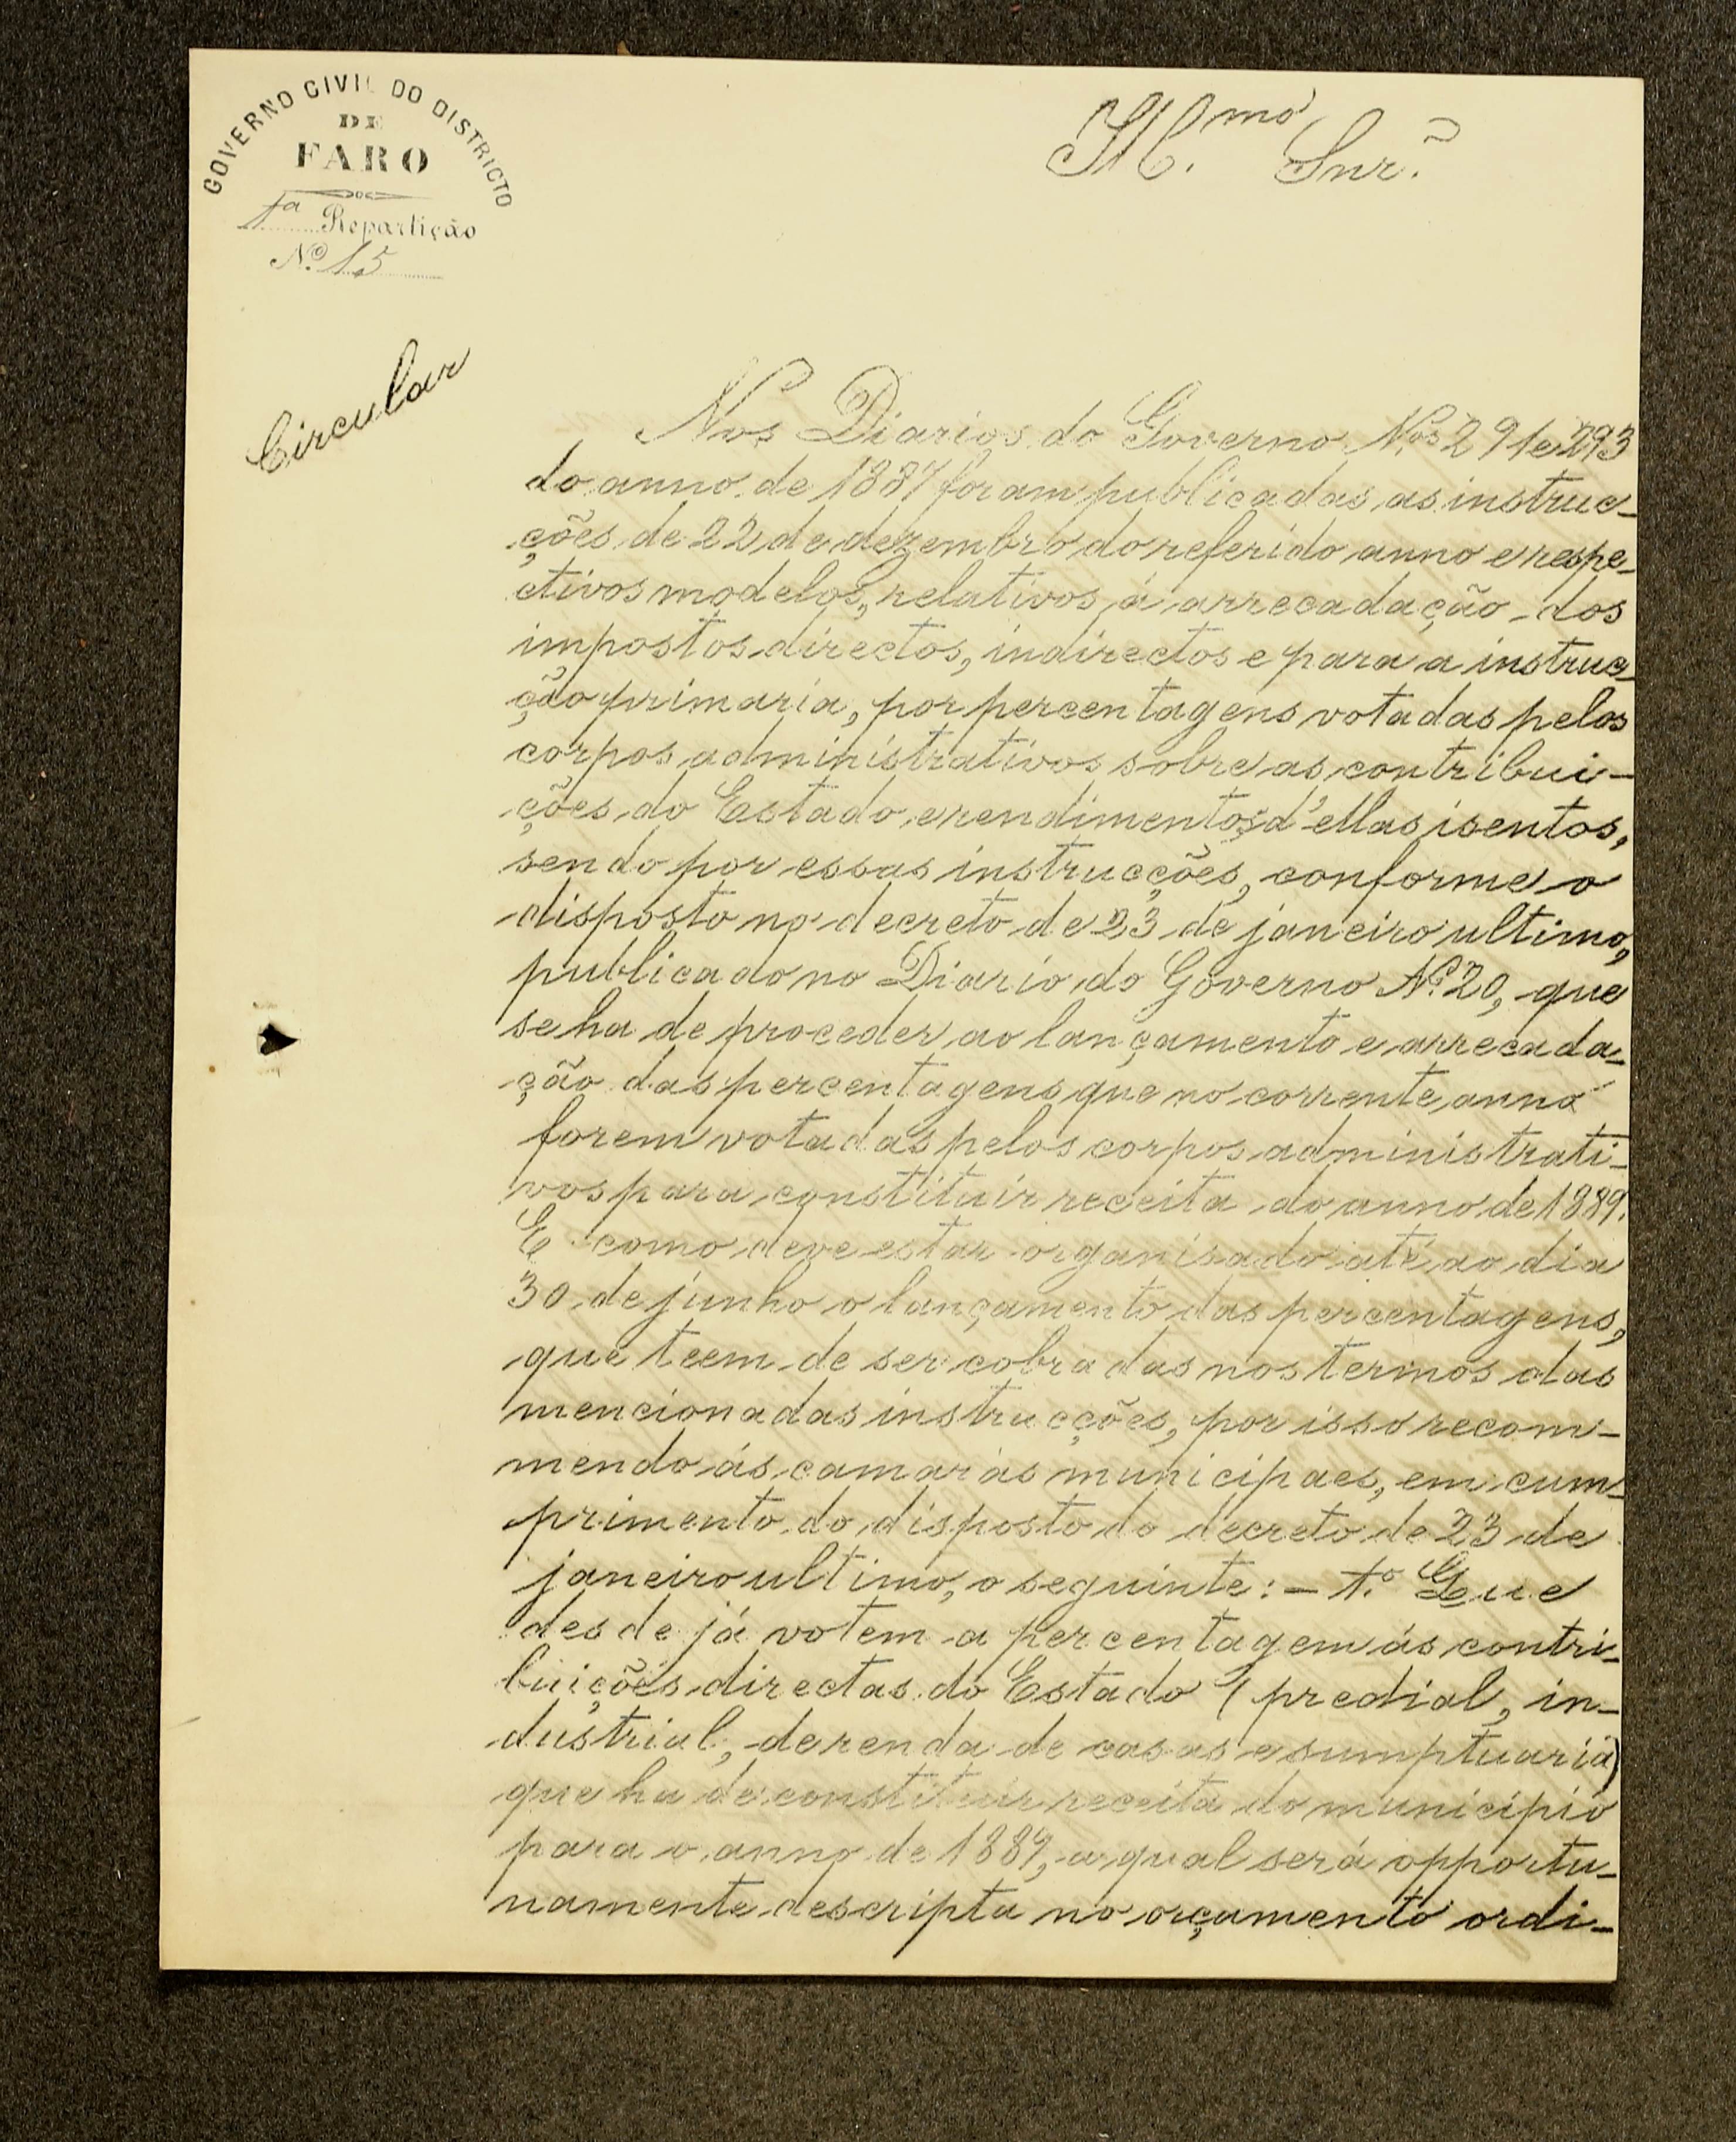 GOVERNO CIVIL DO DISTRICTO
DE
FARO
1ª Repartição
Nº 15
Ill.mo Snr.
Circular
Nos Diarios do Governo Nos 291 e 293
do anno de 1887 foram publicadas as instruc-
ções de 22 de dezembro do referido anno e respe-
ctivos modelos, relativos á arrecadação dos
impostos directos, indirectos e para a instruc-
ção primaria, por percentagens votadas pelos
corpos administrativos sobre as contribui-
ções do Estado e rendimentos d'ellas isentos,
sendo por essas instrucções, conforme o
disposto no decreto de 23 de janeiro ultimo,
publicado no Diario do Governo Nº 20, que
se ha de proceder ao lançamento e arrecada-
ção das percentagens que no corrente anno
forem votadas pelos corpos administrati-
vos para constituir receita do anno de 1889.
E como deve estar organisado até ao dia
30 de junho o lançamento das percentagens,
que teem de ser cobradas nos termos das
mencionadas instrucções, por isso recom-
mendo ás camaras municipaes, em cum-
primento do disposto do decreto de 23 de
janeiro ultimo, o seguinte: - 1.º Que
desde já votem a percentagem ás contri-
buições directas do Estado (predial, in-
dustrial, de renda de casas e sumptuaria)
que ha de constituir receita do municipio
para o anno de 1889, a qual será opportu-
namente descripta no orçamento ordi-